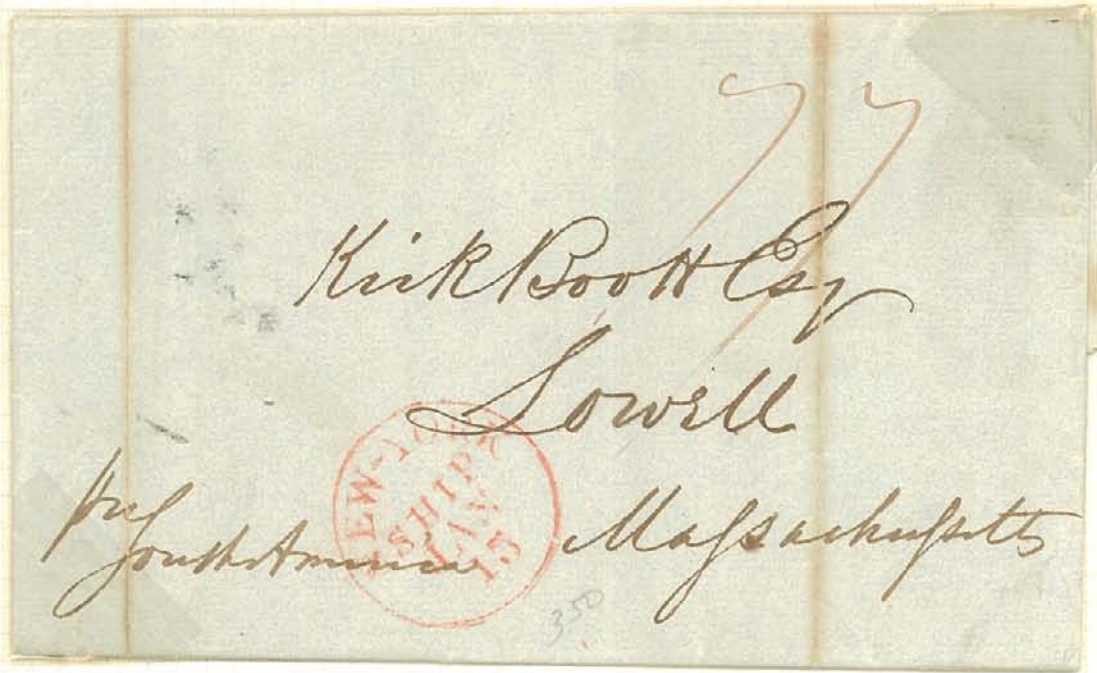 77
Kirk Boott Esq
Lowell
Massachusetts
per
South America
NEW-YORK
SHIP
JAN
15
350